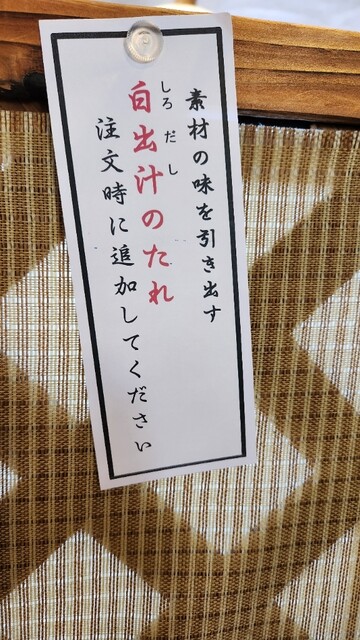 素材の味を引き出す
しろだし
白出汁のたれ
注文時に追加してください